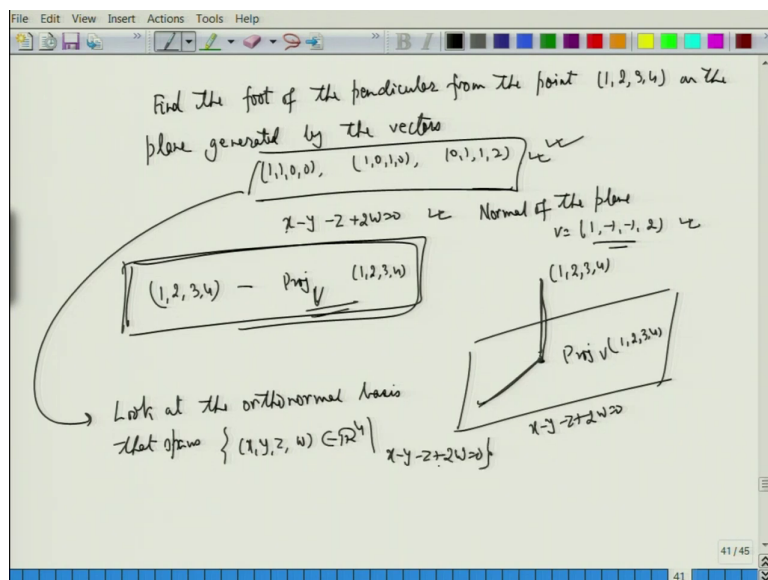 File Edit View Insert Actions Tools Help
Find the foot of the pendicular from the point (1,2,3,4) on the
plane generated by the vectors
(1,1,0,0), (1,0,1,0), (0,1,1,2)
x-y-z+2w=0 Normal of the plane
v=(1,-1,-1,2)
(1,2,3,4) - Proj v (1,2,3,4)
(1,2,3,4)
Proj v(1,2,3,4)
x-y-z+2w=0
Look at the orthonormal basis
that spans {(x,y,z,w) ∈ R⁴ | x-y-z+2w=0}
41/45
41